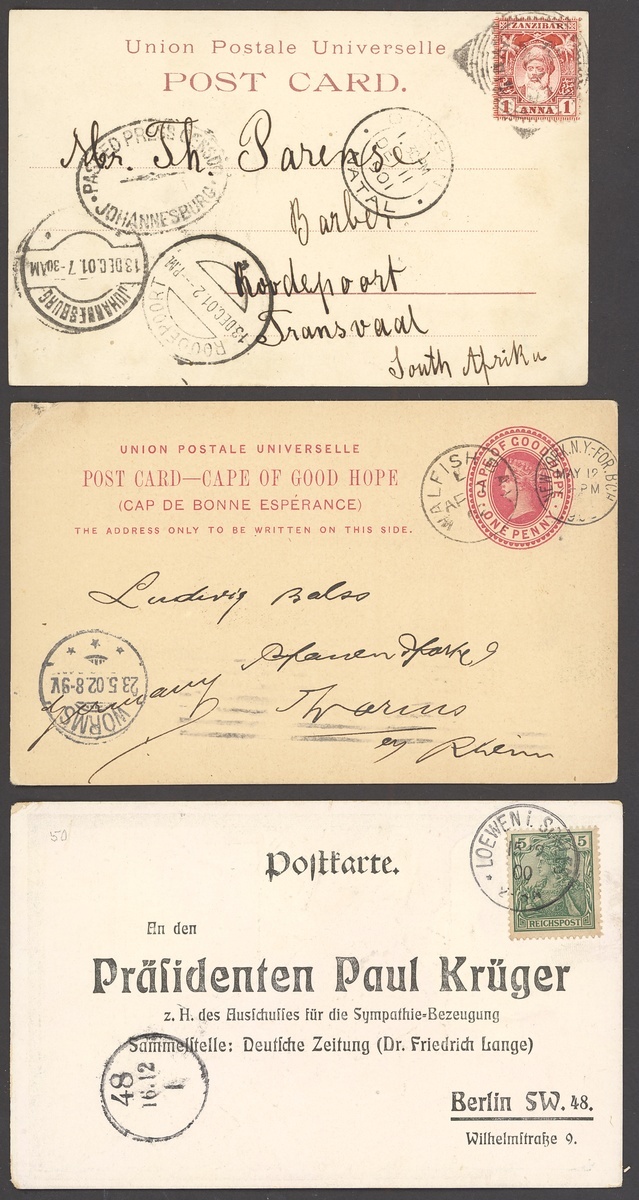 Union Postale Universelle
POST CARD.
ZANZIBAR
1 ANNA 1
Mr. Th. Parense
PASSED PRESS CENSOR
JOHANNESBURG
DURBAN
DE 11
01
NATAL
Barber
Roodepoort
Transvaal
South Afrika
JOHANNESBURG
13 DEC. 01. 7-30AM
ROODEPOORT
13 DEC. 01. 2-- P.M.
UNION POSTALE UNIVERSELLE
POST CARD—CAPE OF GOOD HOPE
(CAP DE BONNE ESPÉRANCE)
THE ADDRESS ONLY TO BE WRITTEN ON THIS SIDE.
WALFISH BAY
AP
CAPE OF GOOD HOPE
ONE PENNY
NEW YORK, N.Y.-FOR. BCH
MAY 12
PM
Ludwig Balss
Germany
Worms
a/ Rhein
WORMS
23.5.02.8-9V.
50
Postkarte.
LOEWEN i. S
00
5 5
REICHSPOST
An den
Präsidenten Paul Krüger
z. H. des Ausschusses für die Sympathie-Bezeugung
Sammelstelle: Deutsche Zeitung (Dr. Friedrich Lange)
48
16.12
1
Berlin SW. 48.
Wilhelmstraße 9.